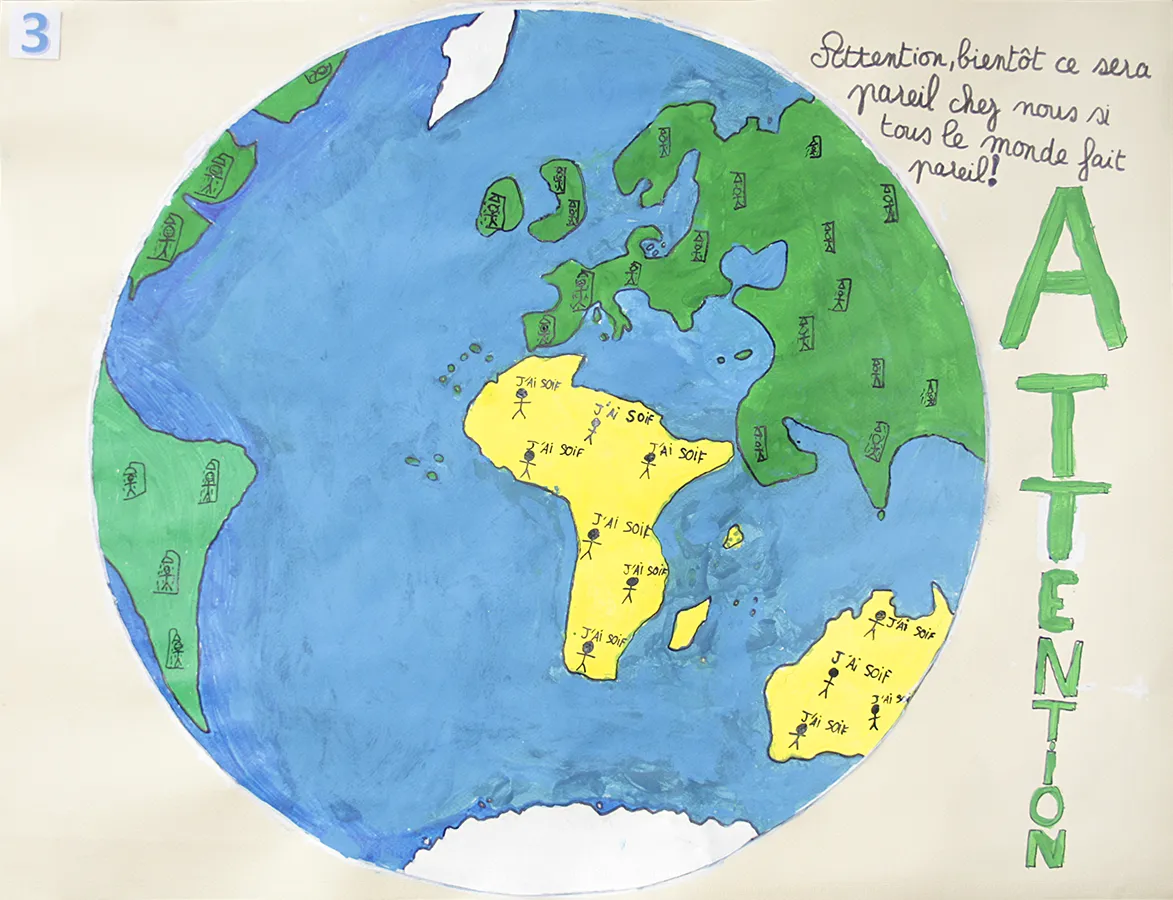 3
Attention, bientôt ce sera
pareil chez nous si
tous le monde fait
pareil!
ATTENTION
J'Ai SOiF
J'Ai SOiF
J'Ai SOiF
J'Ai SOiF
J'Ai SOiF
J'Ai SOiF
J'Ai SOiF
J'Ai SOiF
J'Ai SOiF
J'Ai
J'Ai SOiF